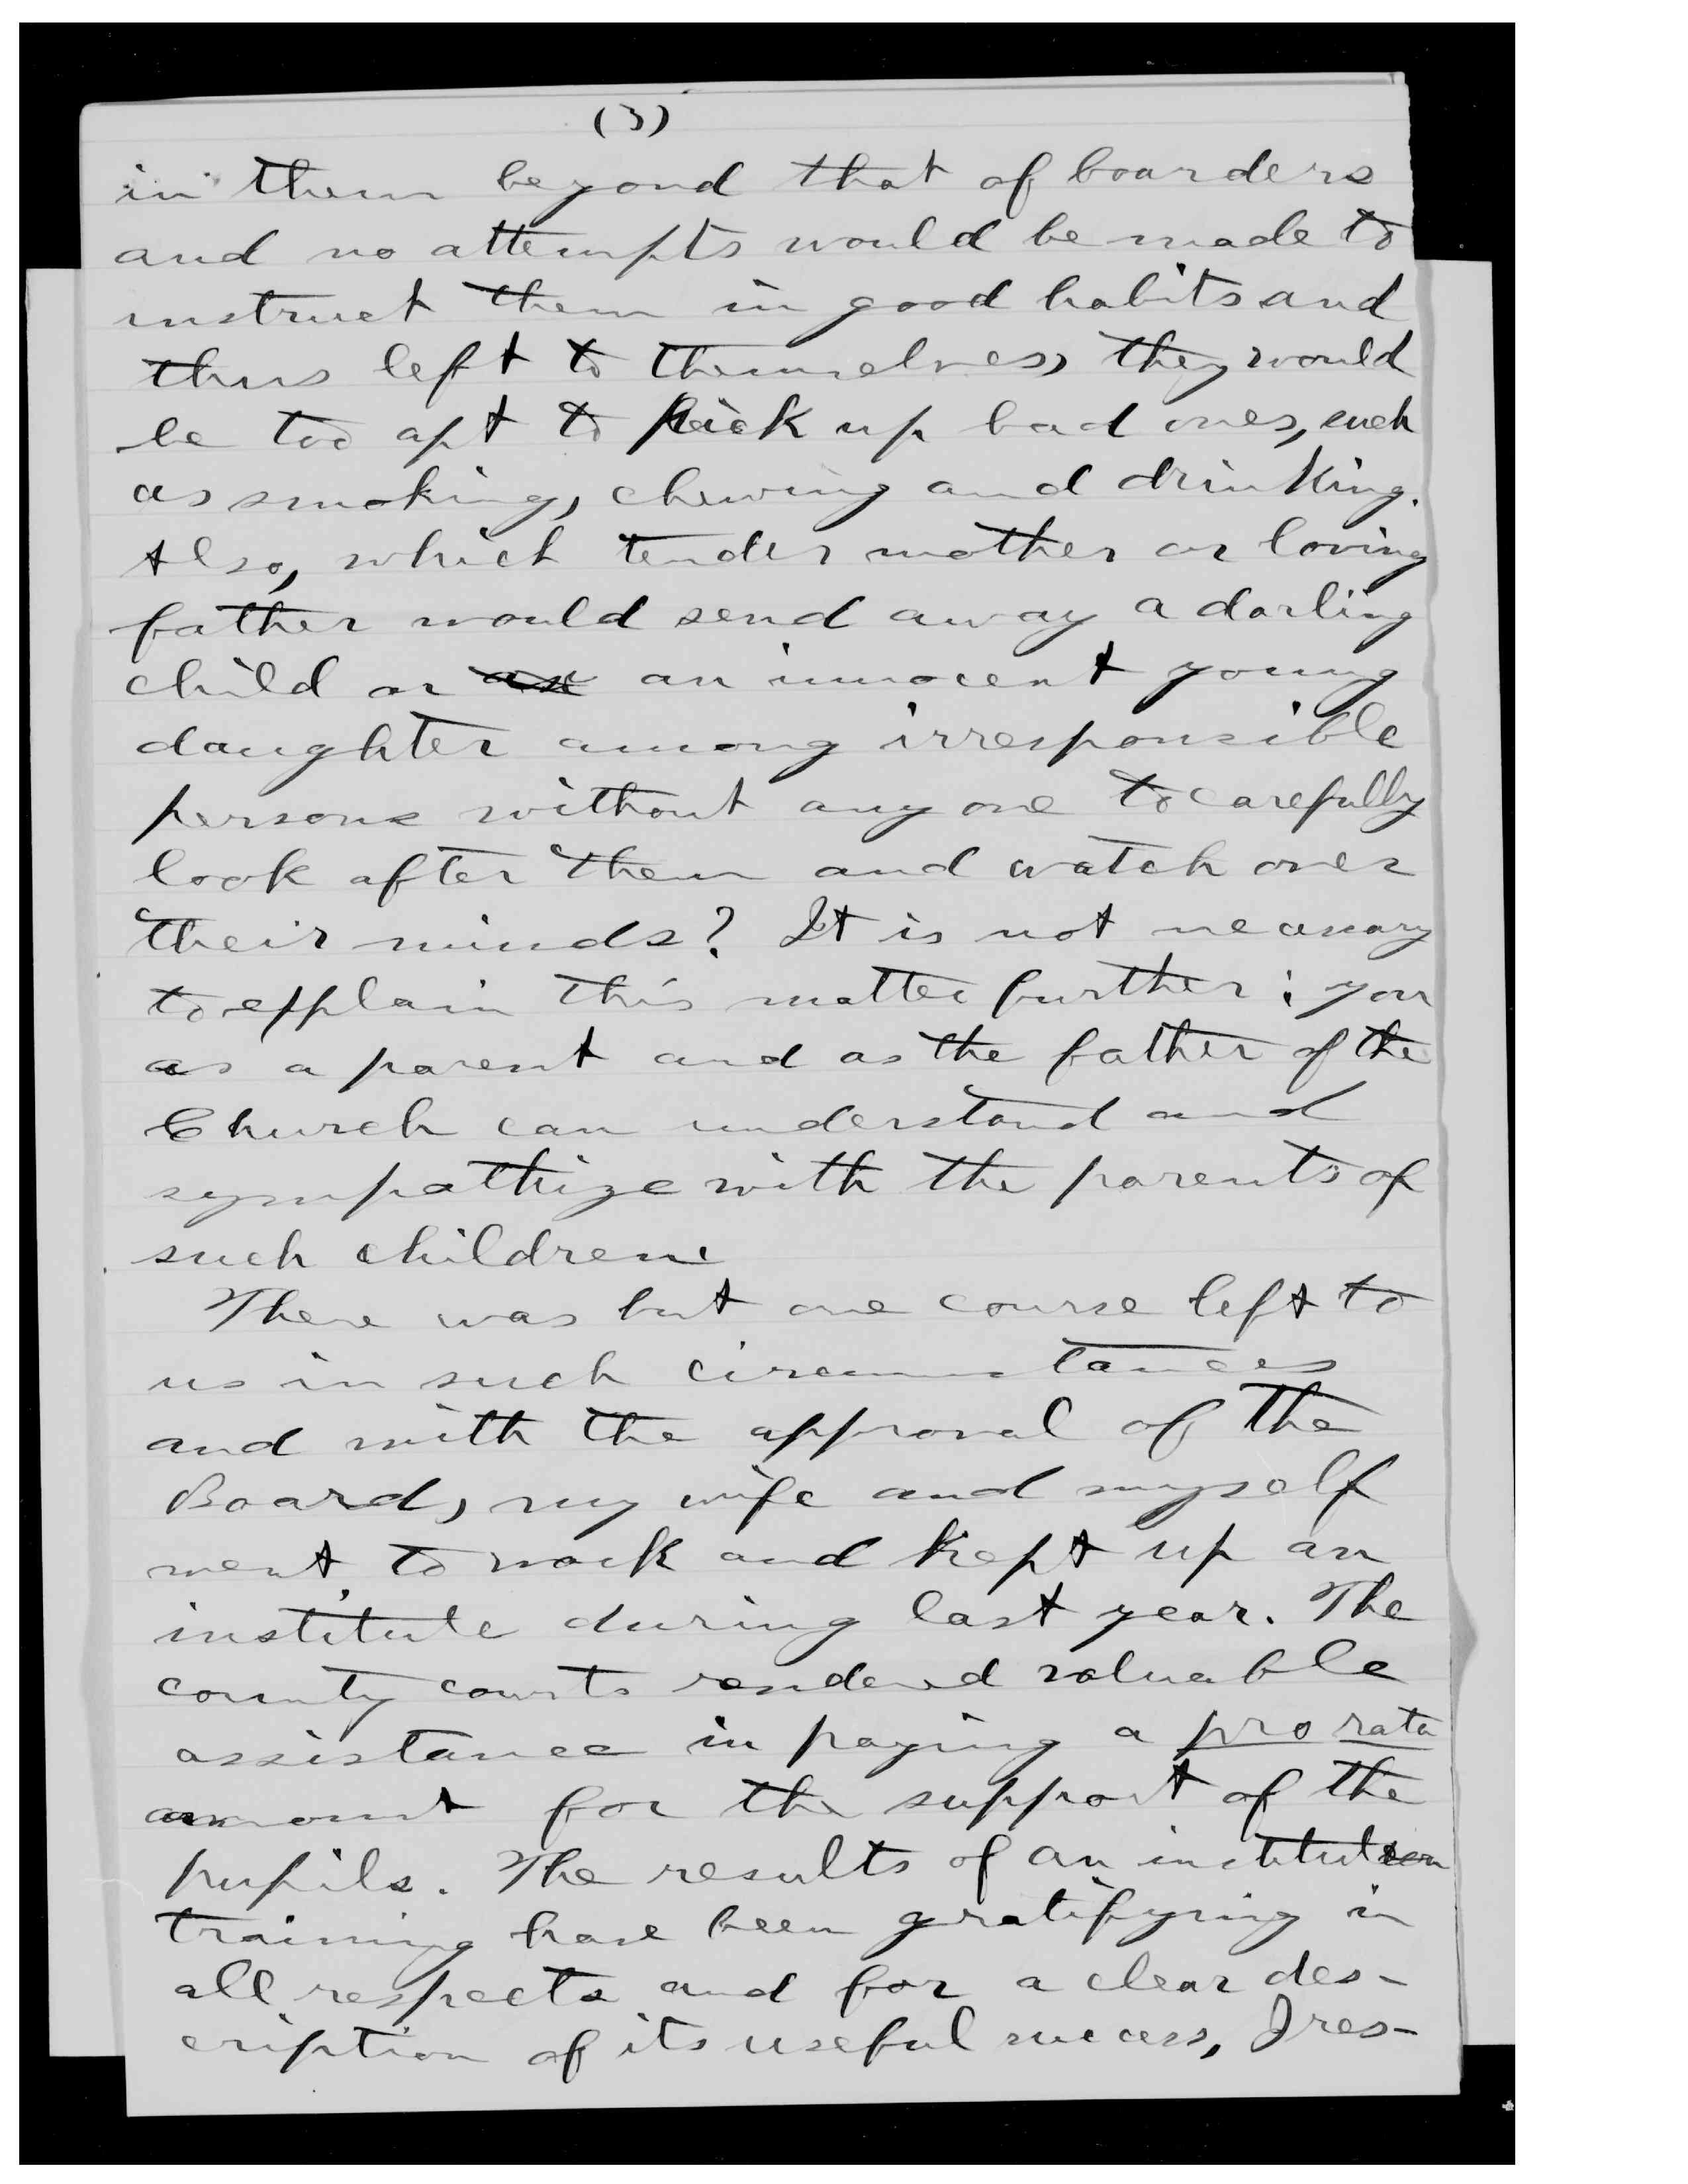 (3)
in them beyond that of boarders
and no attempts would be made to
instruct them in good habits and
thus left to themselves, they would
be too apt to pick up bad ones, such
as smoking, chewing and drinking.
Also, which tender mother or loving
father would send away a darling
child or an innocent young
daughter among irresponsible
persons without any one to carefully
look after them and watch over
their minds? It is not necessary
to explain this matter further; you
as a parent and as the father of the
Church can understand and
sympathize with the parents of
such children.
There was but one course left to
us in such circumstances
and with the approval of the
Board, my wife and myself
went to work and kept up an
institute during last year. The
county courts rendered valuable
assistance in paying a pro rata
amount for the support of the
pupils. The results of an institution
training have been gratifying in
all respects and for a clear des-
cription of its useful success, I res-